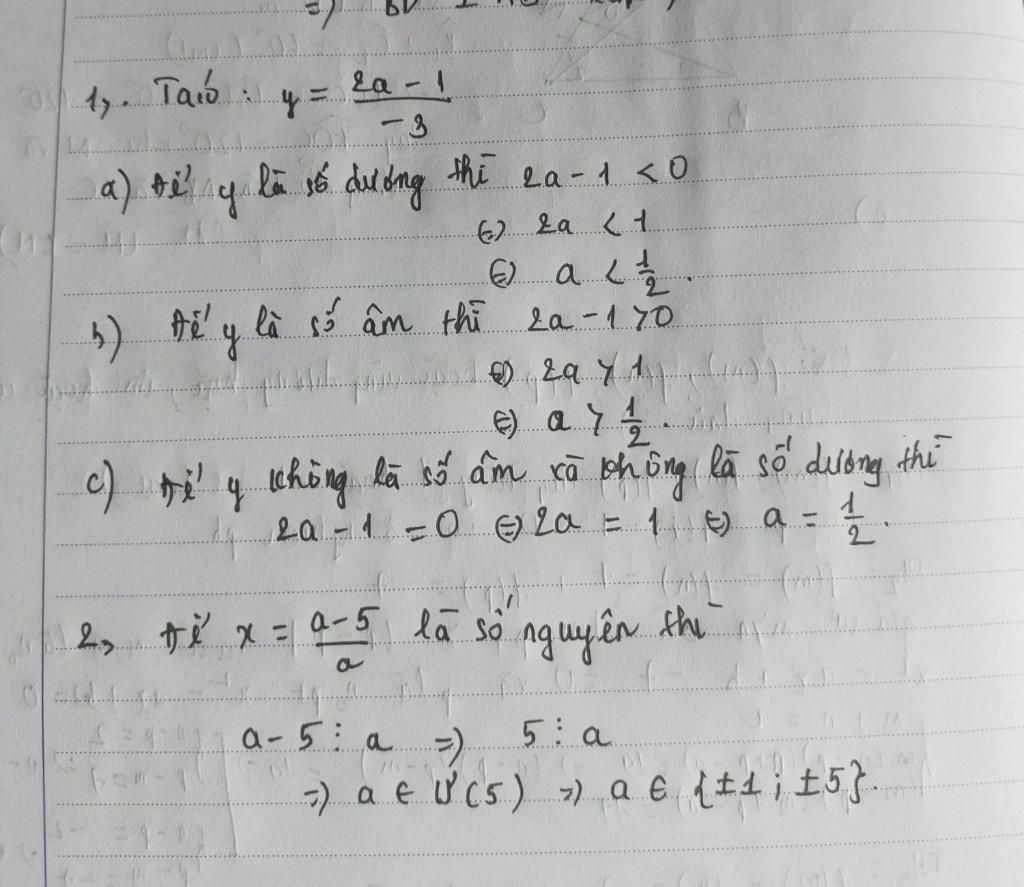 1,. Ta có : y = \frac{2a - 1}{-3}
a) Để y là số dương thì 2a - 1 < 0
⇔ 2a < 1
⇔ a < \frac{1}{2}.
b) Để y là số âm thì 2a - 1 > 0
⇔ 2a > 1
⇔ a > \frac{1}{2}.
c) Để y không là số âm và không là số dương thì
2a - 1 = 0 ⇔ 2a = 1 ⇔ a = \frac{1}{2}.
2, Để x = \frac{a-5}{a} là số nguyên thì
a - 5 ⋮ a ⇒ 5 ⋮ a
⇒ a ∈ Ư(5) ⇒ a ∈ {±1 ; ±5}.